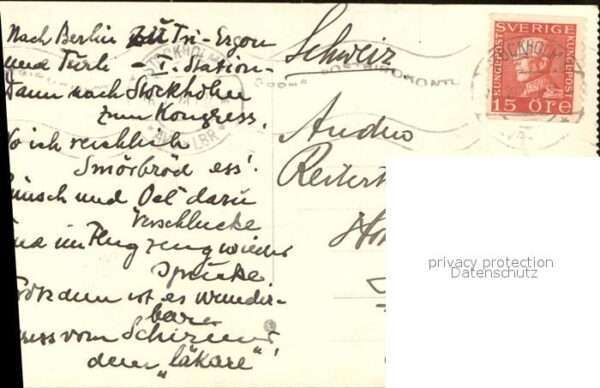 Nach Berlin zu Tri-Ergon
und Türk - I. Station -
Dann nach Stockholm
zum Kongress.
Wo ich reichlich
Smörbröd ess!
Punsch und Oel dazu
verschlucke
und im Flugzeug wieder
spucke.
Trotzdem ist es wunder-
barer
Gruss vom
dem „läkare"!
Schweiz
Andus
Reitert
SVERIGE
KUNGSPOST
KUNGSPOST
15 ÖRE
STOCKHOLM
STOCKHOLM
privacy protection
Datenschutz